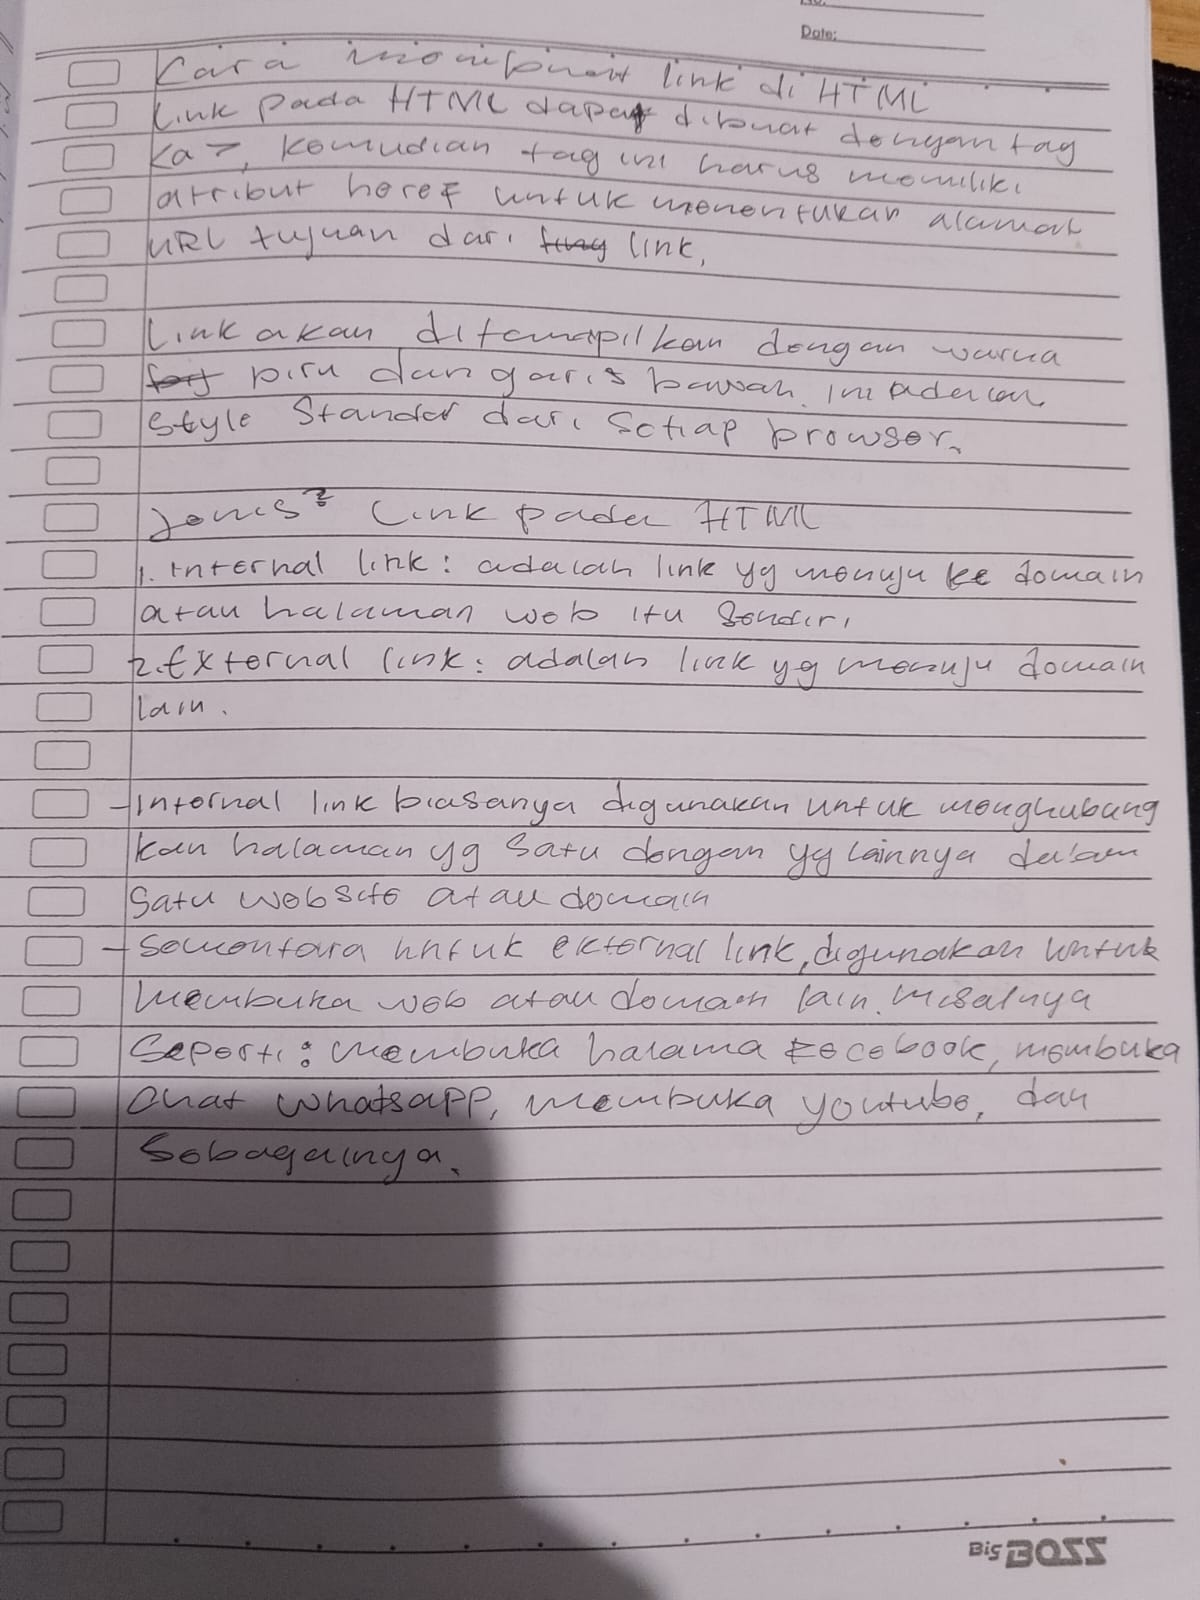 No.
Date:
Cara membuat link di HTML
Link pada HTML dapat dibuat dengan tag
<a>, kemudian tag ini harus memiliki
atribut heref untuk menentukan alamat
URL tujuan dari link,
Link akan ditampilkan dengan warna
biru dan garis bawah. Ini adalah
style Standar dari setiap browser.
Jenis² Link pada HTML
1. Internal link: adalah link yg menuju ke domain
atau halaman web itu sendiri
2. External link: adalah link yg menuju domain
lain.
- Internal link biasanya digunakan untuk menghubung
kan halaman yg satu dengan yg lainnya dalam
satu website atau domain
- Sementara untuk external link, digunakan untuk
membuka web atau domain lain. Misalnya
Seperti: membuka halama Facebook, membuka
Chat Whatsapp, membuka youtube, dan
Sebagainya.
Big BOSS